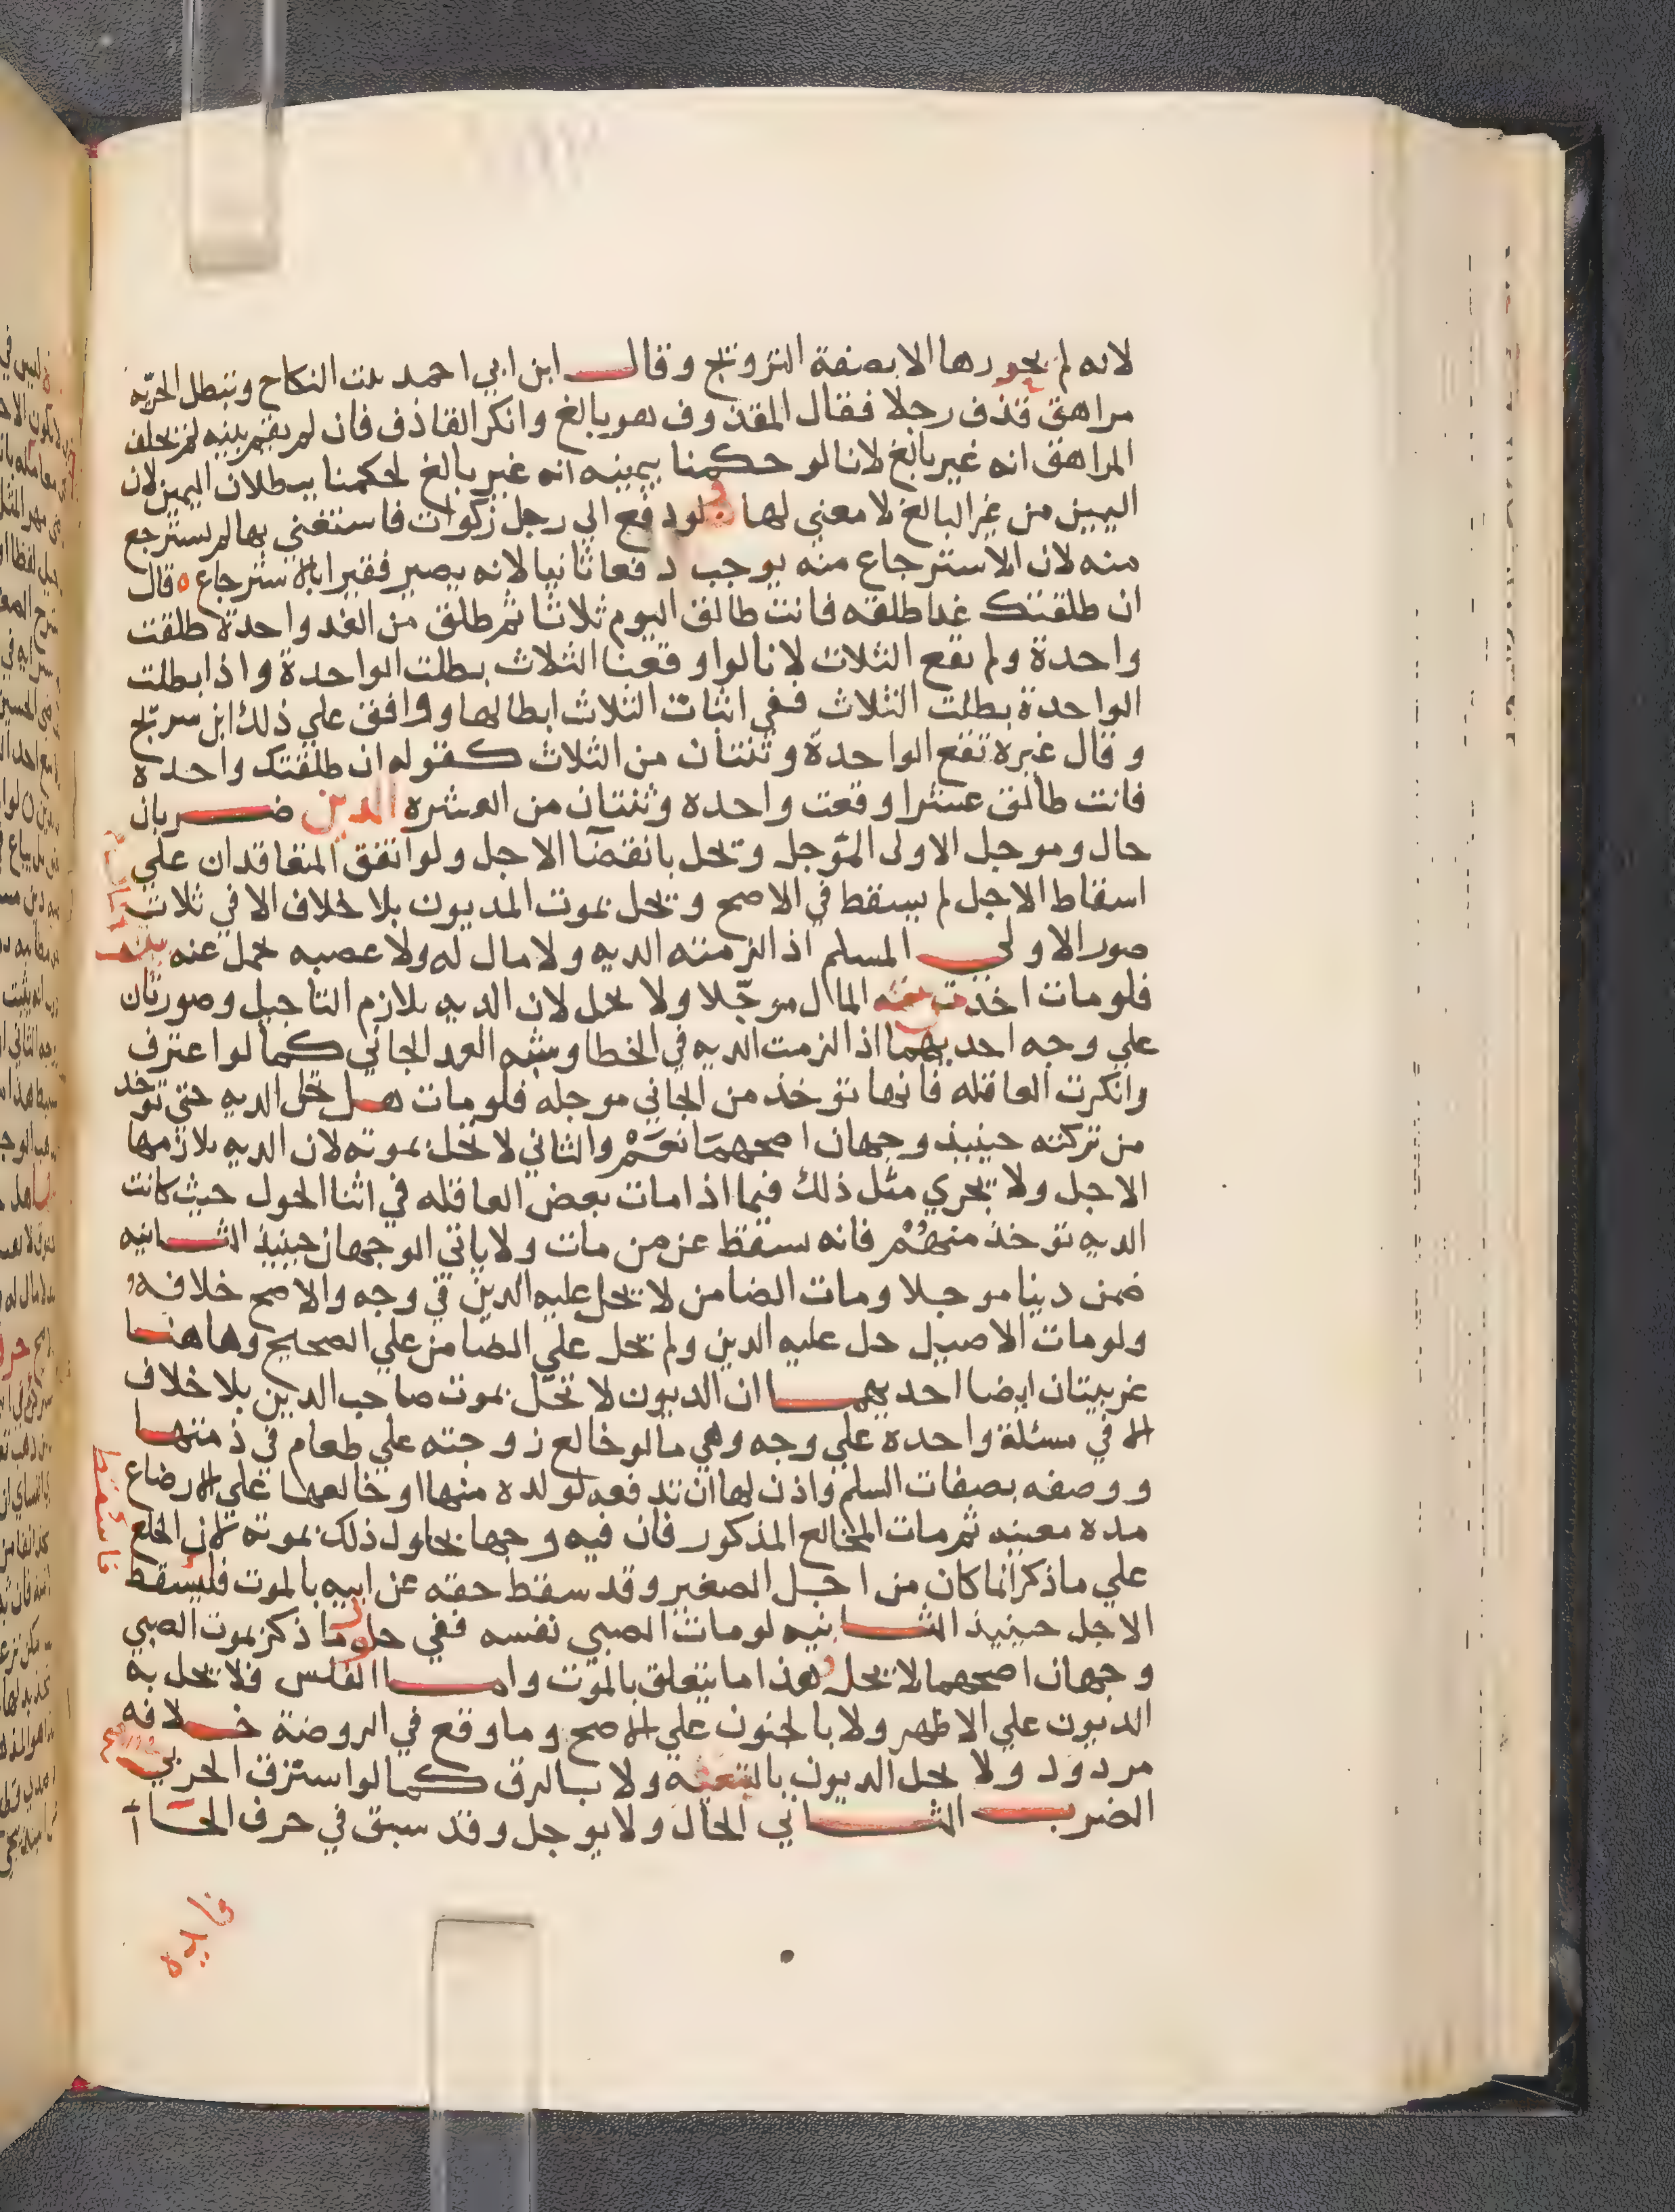 لانه لم يحررها الا بصفة التزويج وقال ابن ابي احمد يثبت النكاح وتبطل الحريه
مراهق قذف رجلا فقال المقذوف هو بالغ وانكر القاذف فان لم يقم بينه لم يحلف
المراهق انه غير بالغ لانا لو حكمنا بيمينه انه غير بالغ لحكمنا ببطلان اليمين لان
اليمين من غير البالغ لا معني لها ولو دفع الي رجل زكوات فاستغني بها لم يسترجع
منه لان الاسترجاع منه يوجب دفعا ثانيا لانه يصير فقيرا بالاسترجاع ه قال
ان طلقتك غدا طلقه فانت طالق اليوم ثلاثا ثم طلق من الغد واحدة طلقت
واحدة ولم تقع الثلاث لانا لو اوقعنا الثلاث بطلت الواحدة واذا بطلت
الواحدة بطلت الثلاث ففي اثبات الثلاث ابطالها ووافق علي ذلك ابن سريج
وقال غيره تقع الواحدة وثنتان من الثلاث كقوله ان طلقتك واحده
فانت طالق عشرا وقعت واحده وثنتان من العشره الدين ضربان
حال وموجل الاولى الموجل وتحل بانقضآ الاجل ولو اتفق المتعاقدان علي
اسقاط الاجل لم يسقط في الاصح وتحل بموت المديون بلا خلاف الا في ثلاث
صور الاولي المسلم اذا لزمته الديه ولا مال له ولا عصبه تحمل عنه بيت
فلو مات اخذت من المال موجلا ولا تحل لان الديه يلازم التاجيل وصورتان
علي وجه احديهما اذا لزمت الديه في الخطا وشبه العمد الجاني كما لو اعترف
وانكرت العاقله فانها توخذ من الجاني موجله فلو مات هل تحل الديه حتى توخد
من تركته حينيذ وجهان اصحهما نعم والثاني لا تحل بموته لان الديه يلازمها
الاجل ولا يجري مثل ذلك فيما اذا مات بعض العاقله في اثنا الحول حيث كانت
الديه توخذ منهم فانه يسقط عن من مات ولا ياتي الوجهان حينيذ الثانيه
ضمن دينا موجلا ومات الضامن لا تحل عليه الدين في وجه والاصح خلافه
ولو مات الاصيل حل عليه الدين ولم تحل علي الضامن علي الصحيح وهاهنا
غريبتان ايضا احديهما ان الديون لا تحل بموت صاحب الدين بلا خلاف
الا في مسئلة واحده علي وجه وهي ما لو خالع زوجته علي طعام في ذمتها
ووصفه بصفات السلم واذن لها ان تدفعه لولده منها او خالعها علي الارضاع
مده معينه ثم مات المخالع المذكور فان فيه وجها بحلول ذلك بموته لان الخلع
علي ما ذكر انما كان من اجل الصغير وقد سقط حقه عن ابيه بالموت فليسقط
الاجل حينيذ الثانيه لو مات الصبي نفسه ففي حلول ما ذكر بموت الصبي
وجهان اصحهما لا تحل هذا ما يتعلق بالموت واما الفلس فلا تحل به
الديون علي الاظهر ولا بالجنون علي الاصح وما وقع في الروضة خلافه
مردود ولا تحل الديون ولا بالرق كما لو استرق الحربي
الضرب الثاني الحال ولا يوجل وقد سبق في حرف الحآ
فايده